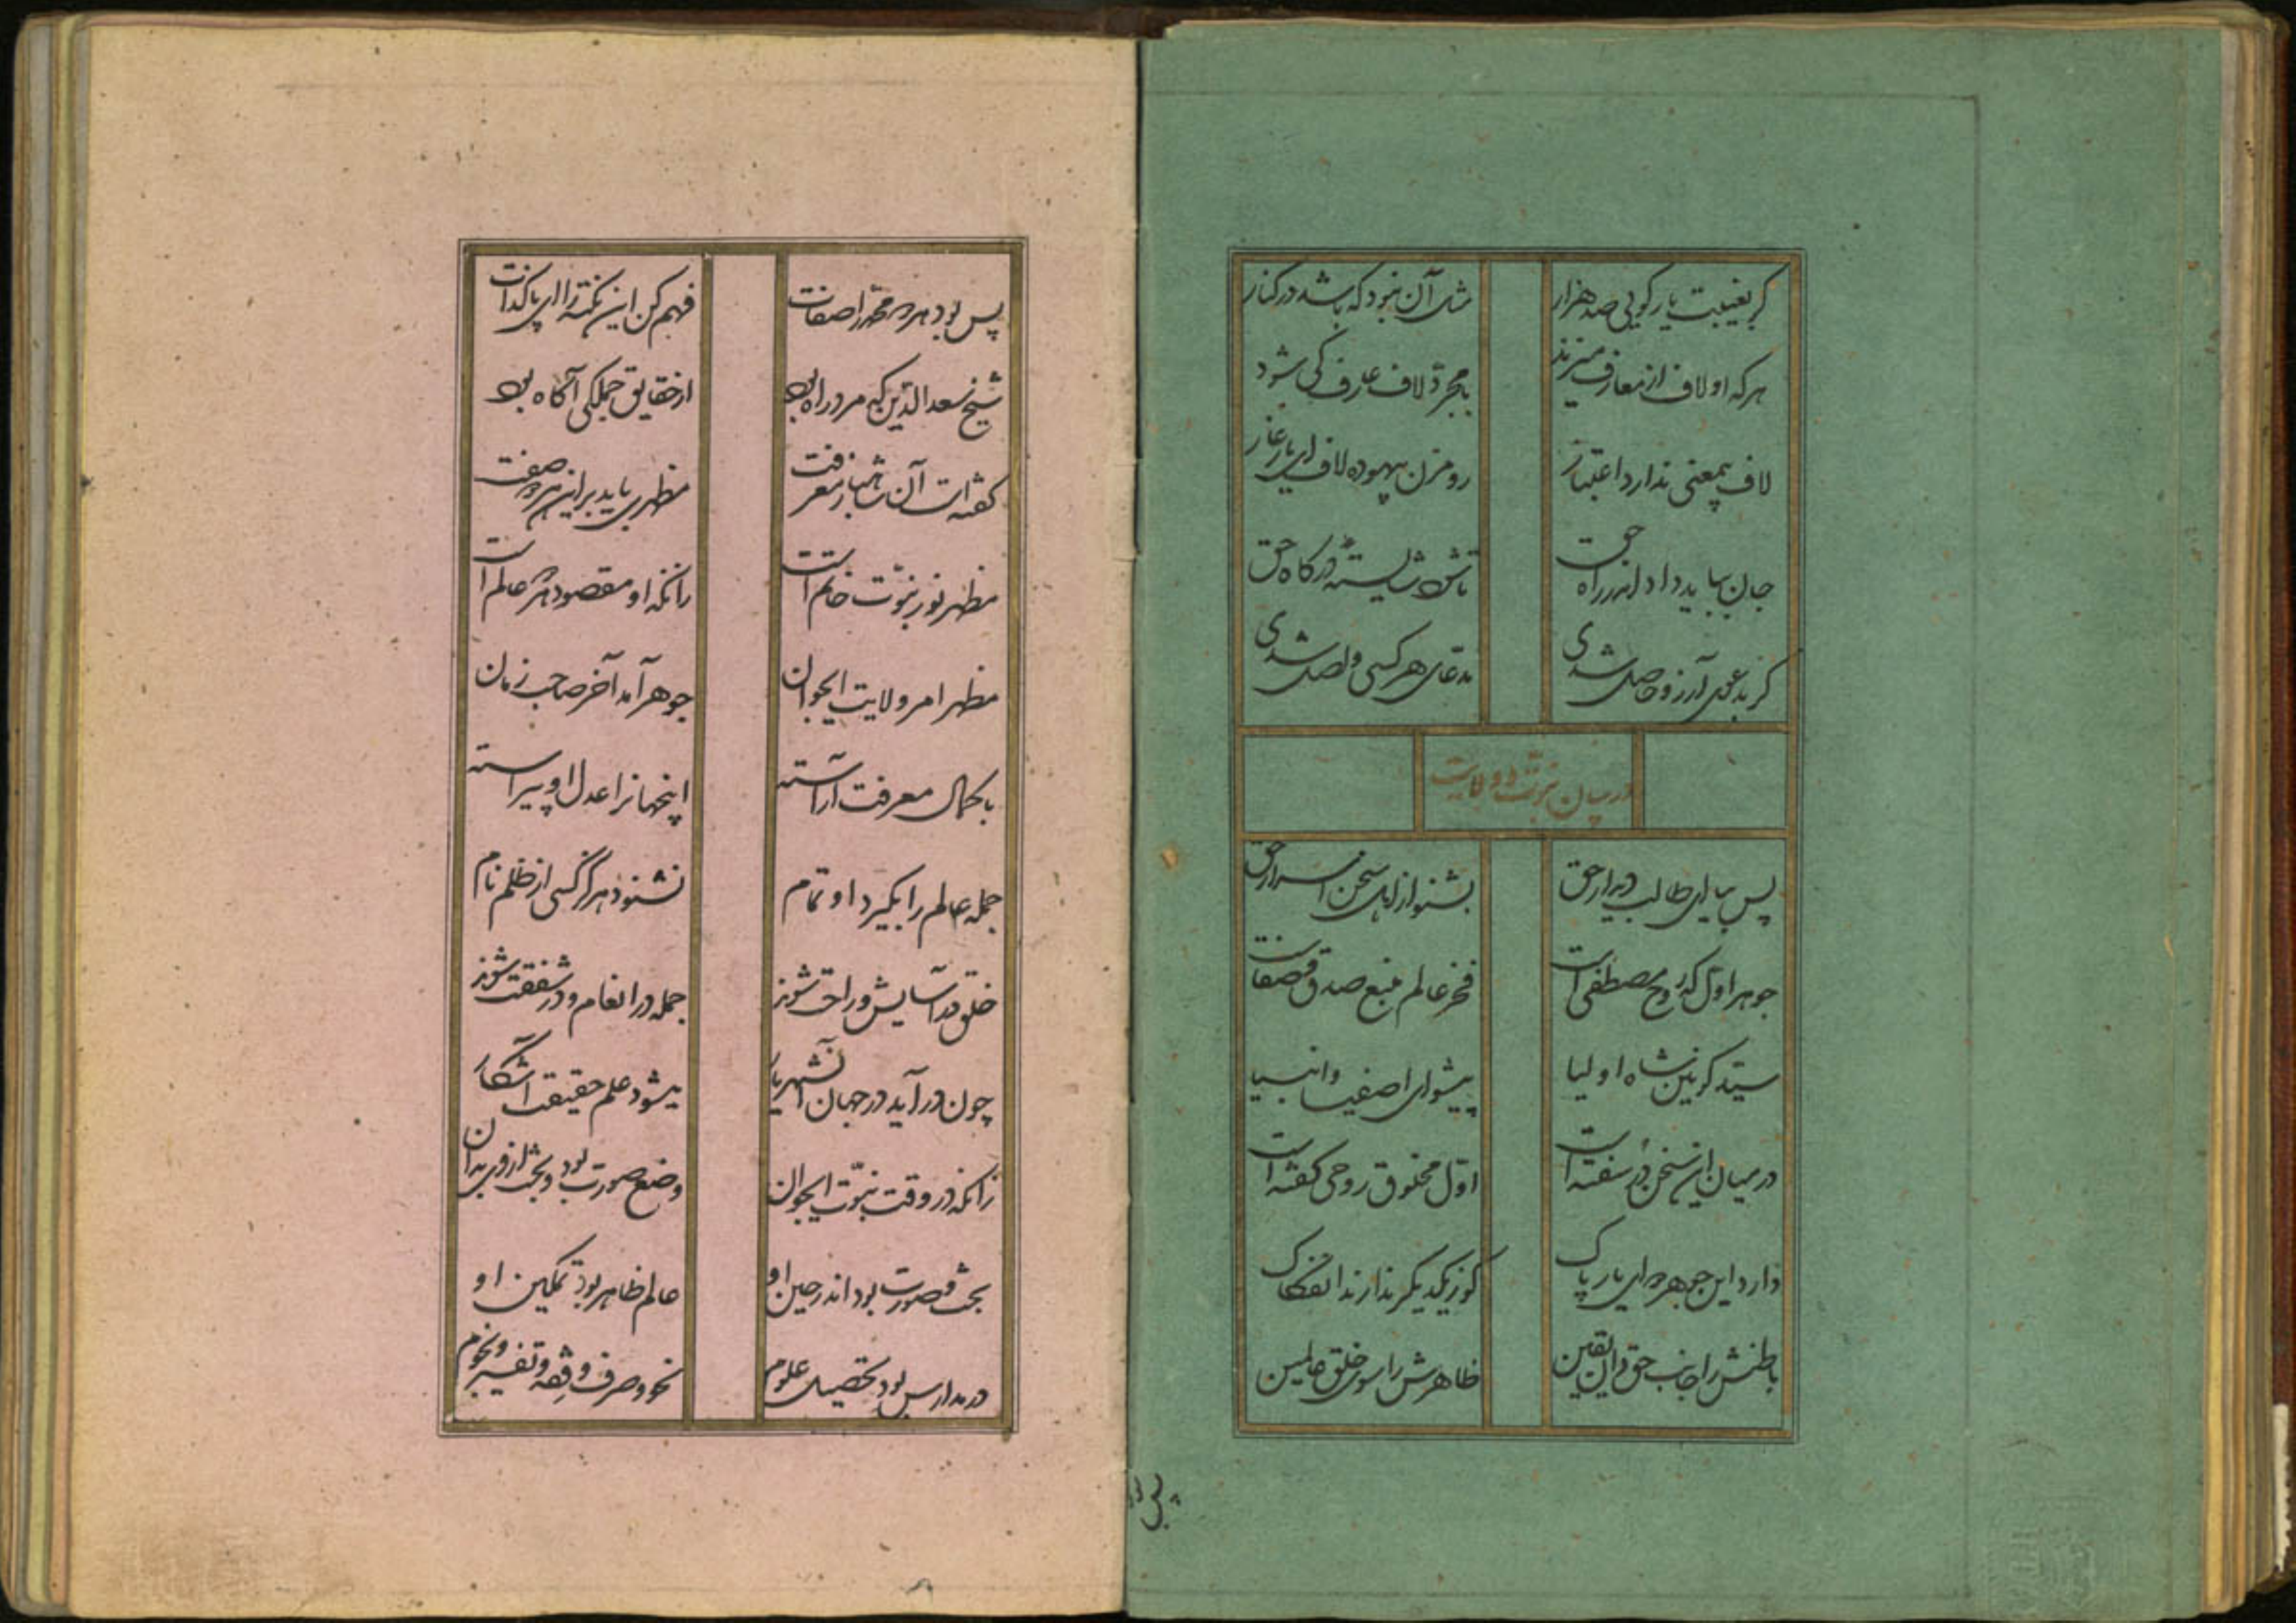 گر بغیبت یار کویی صد هزار مثل آن نبود که باشد در کنار
هر که او لاف از معارف میزند با مجرد لاف عارف کی شود
لاف بیمعنی ندارد اعتبار رو مزن بیهوده لاف ای یار غار
جان بباید داد اندر راه حق تا شوی شایسته درکاه حق
کر بدعوی آرزو حاصل شدی مدعای هر کسی واصل شدی
در بیان نبوت و ولایت
پس بیا ای طالب دیدار حق بشنو از اهل سخن اسرار حق
جوهر اول که روح مصطفی است فخر عالم منبع صدق و صفاست
سید کونین شاه اولیا پیشوای اصفیا و انبیا
در میان این سخن در سفته است اول مخلوق روحی کفته است
دارد این جوهر دو ای یار پاک کوز یکدیکر ندارند انفکاک
باطنش را جانب حق دان یقین ظاهرش را سوی خلق عالمین
پس بود هر دو محمد را صفات فهم کن این نکته را ای پاکذات
شیخ سعدالدین که مرد راه بود از حقایق جملکی آکاه بود
کفته است آن شاهباز معرفت مظهری باید برای هر دو صفت
مظهر نور نبوت خاتم است زانکه او مقصود هر عالم است
مظهر امر ولایت ایجوان جوهر آمد آخر صاحب زمان
با کمال معرفت آراسته اینجهانرا عدل او پیراسته
جمله عالم را بکیرد او تمام نشنود هرکز کسی از ظلم نام
خلق در آسایش و راحت شوند جمله در انعام و در شفقت شوند
چون در آید در جهان آن شهریار میشود علم حقیقت آشکار
زانکه در وقت نبوت ایجوان وضع صورت بود و بحث از وی بدان
بحث و صورت بود اندر حین او عالم ظاهر بود تمکین او
در مدارس بود تحصیل علوم نحو و صرف و فقه و تفسیر و نجوم
پس بود